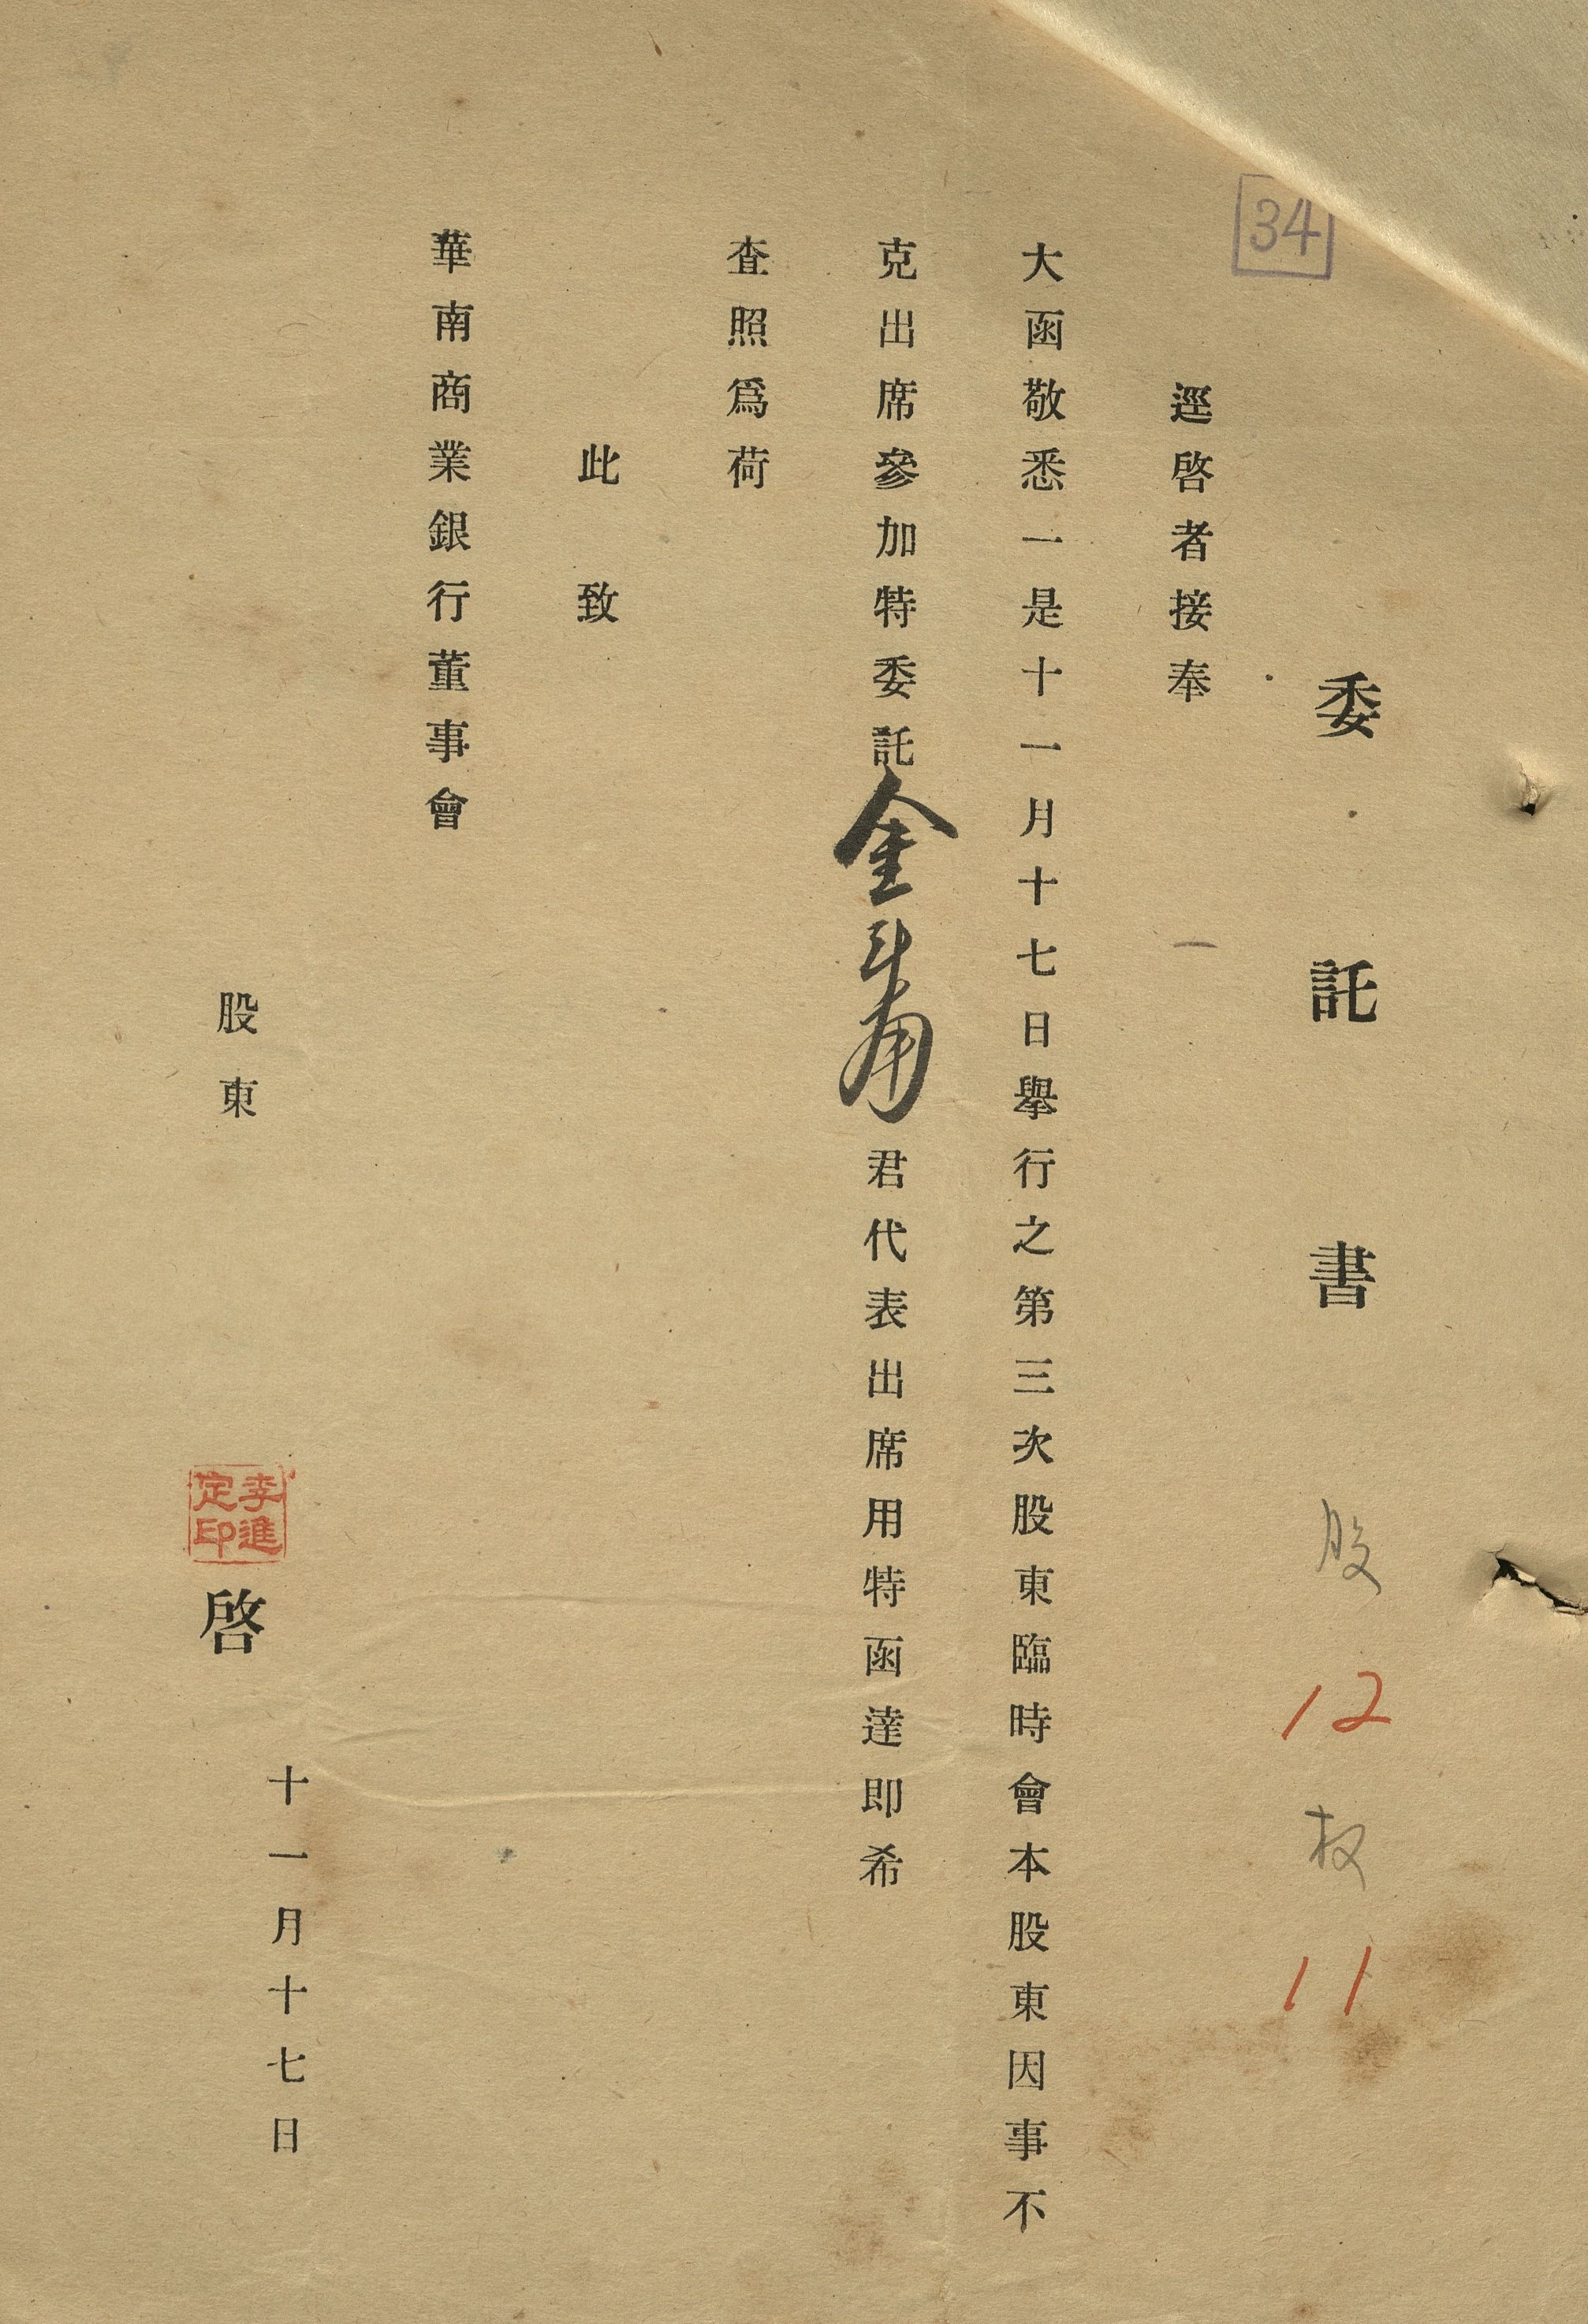 34
委託書 股 12 权 11
逕啓者接奉
大函敬悉一是十一月十七日舉行之第三次股東臨時會本股東因事不
克出席參加特委託金斗甫君代表出席用特函達即希
查照爲荷
此致
華南商業銀行董事會
股東 李進定印 啓
十一月十七日